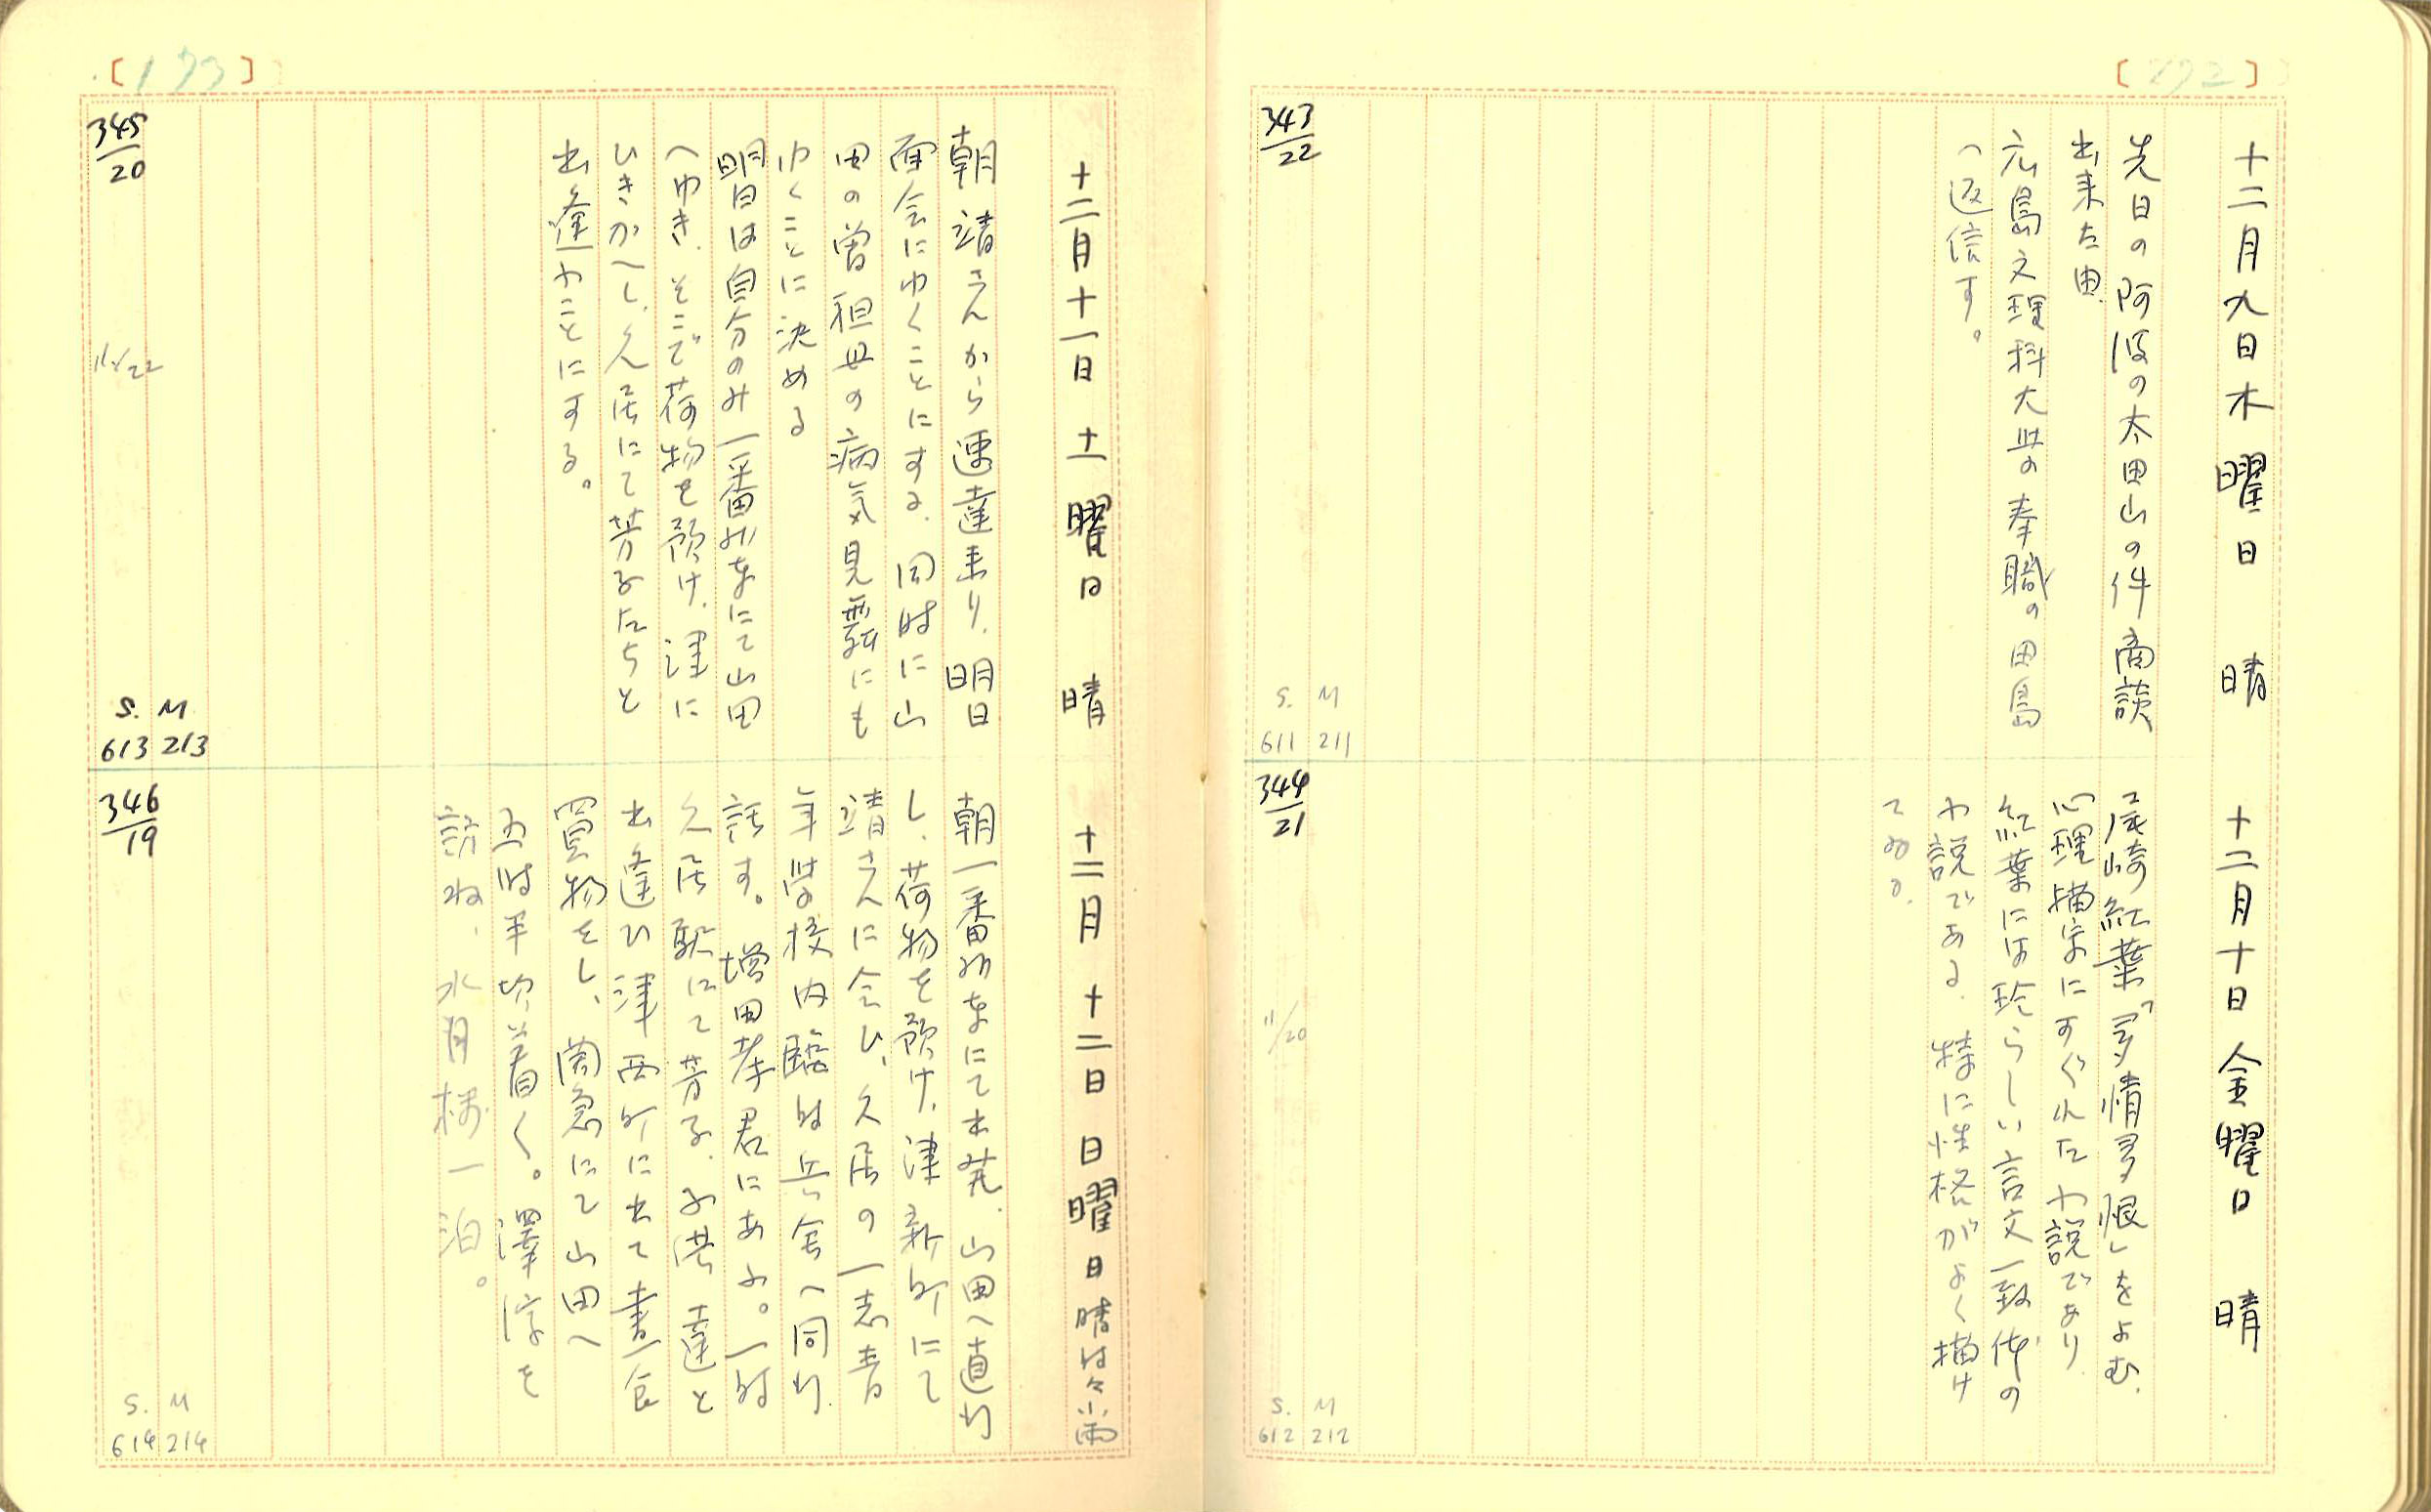 [172]
十二月九日木曜日 晴
先日の阿波の太田山の件商談
出来た由。
広島文理科大学の奉職の田島
へ返信す。
343/22
S. M
611 211
十二月十日金曜日 晴
尾崎紅葉「多情多恨」をよむ.
心理描写にすぐれた小説であり
紅葉には珍らしい言文一致体の
小説である. 特に性格がよく描け
てゐる.
344/21
11/20
S. M
612 212
[173]
十二月十一日土曜日 晴
朝靖さんから速達来り.明日
面会にゆくことにする.同時に山
田の曽祖母の病気見舞にも
ゆくことに決める
明日は自分のみ一番列車にて山田
へゆき.そこで荷物を預け.津に
ひきかへし.久居にて芳子たちと
出逢ふことにする。
345/20
11/22
S. M
613 213
十二月十二日日曜日晴時々小雨
朝一番列車にて出発.山田へ直行
し、荷物を預け.津新町にて
靖さんに会ひ、久居の一志青
年学校内臨時兵舎へ同行.
話す。増田孝君にあふ。一時
久居駅にて芳子.お港達と
出逢ひ津西町に出て昼食
買物をし、関急にて山田へ
五時半頃着く。澤淳を
訪ね、水月楼一泊。
346/19
S. M
614 214